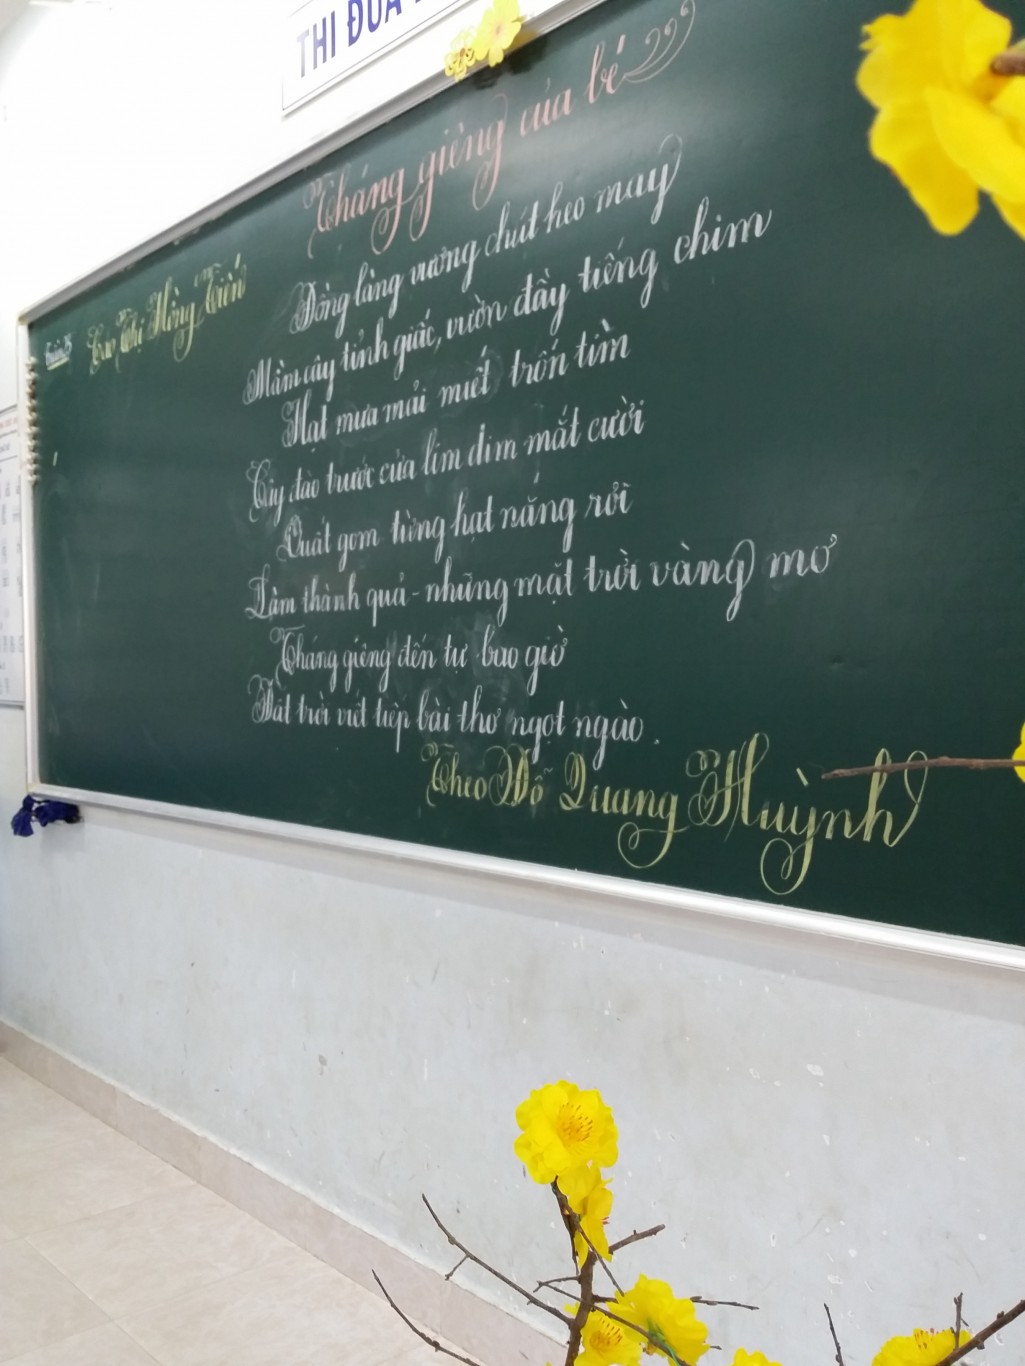 THI ĐUA
Tháng giêng của bé
Cao Thị Hồng Tiến
Đồng làng vương chút heo may
Mầm cây tỉnh giấc, vườn đầy tiếng chim
Hạt mưa mải miết trốn tìm
Cây đào trước cửa lim dim mắt cười
Quất gom từng hạt nắng rơi
Làm thành quả - những mặt trời vàng mơ
Tháng giêng đến tự bao giờ
Đất trời viết tiếp bài thơ ngọt ngào.
Theo Đỗ Quang Huỳnh